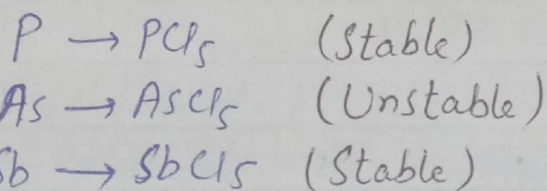 P → PCl5 (Stable)
As → AsCl5 (Unstable)
Sb → SbCl5 (Stable)